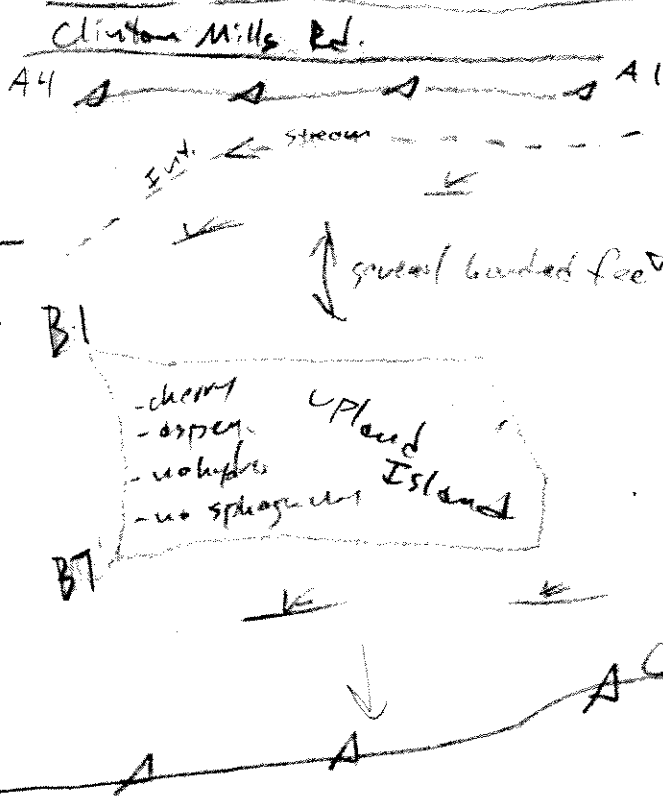 Clinton Mills Rd.
A4
A1
Int.
stream
several hundred feet
B1
-cherry
-aspen
-no hydro
-no sphagnum
Upland
Island
B7
C